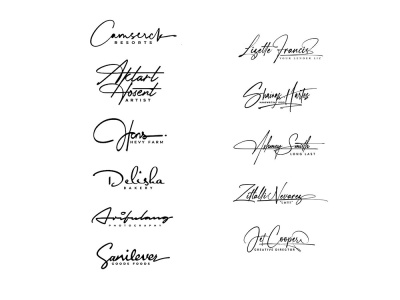 Camserck
RESORTS
Aktart
Hosent
ARTIST
Hons
HEVY FARM
Delisha
BAKERY
Arifulang
PHOTOGRAPHY
Sanilever
GOODS FOODS
Lizette Francis
Shawns Hartes
Ashney Smith
LONG LAST
Zitlalli Nevarez
Jet Cooper
CREATIVE DIRECTOR